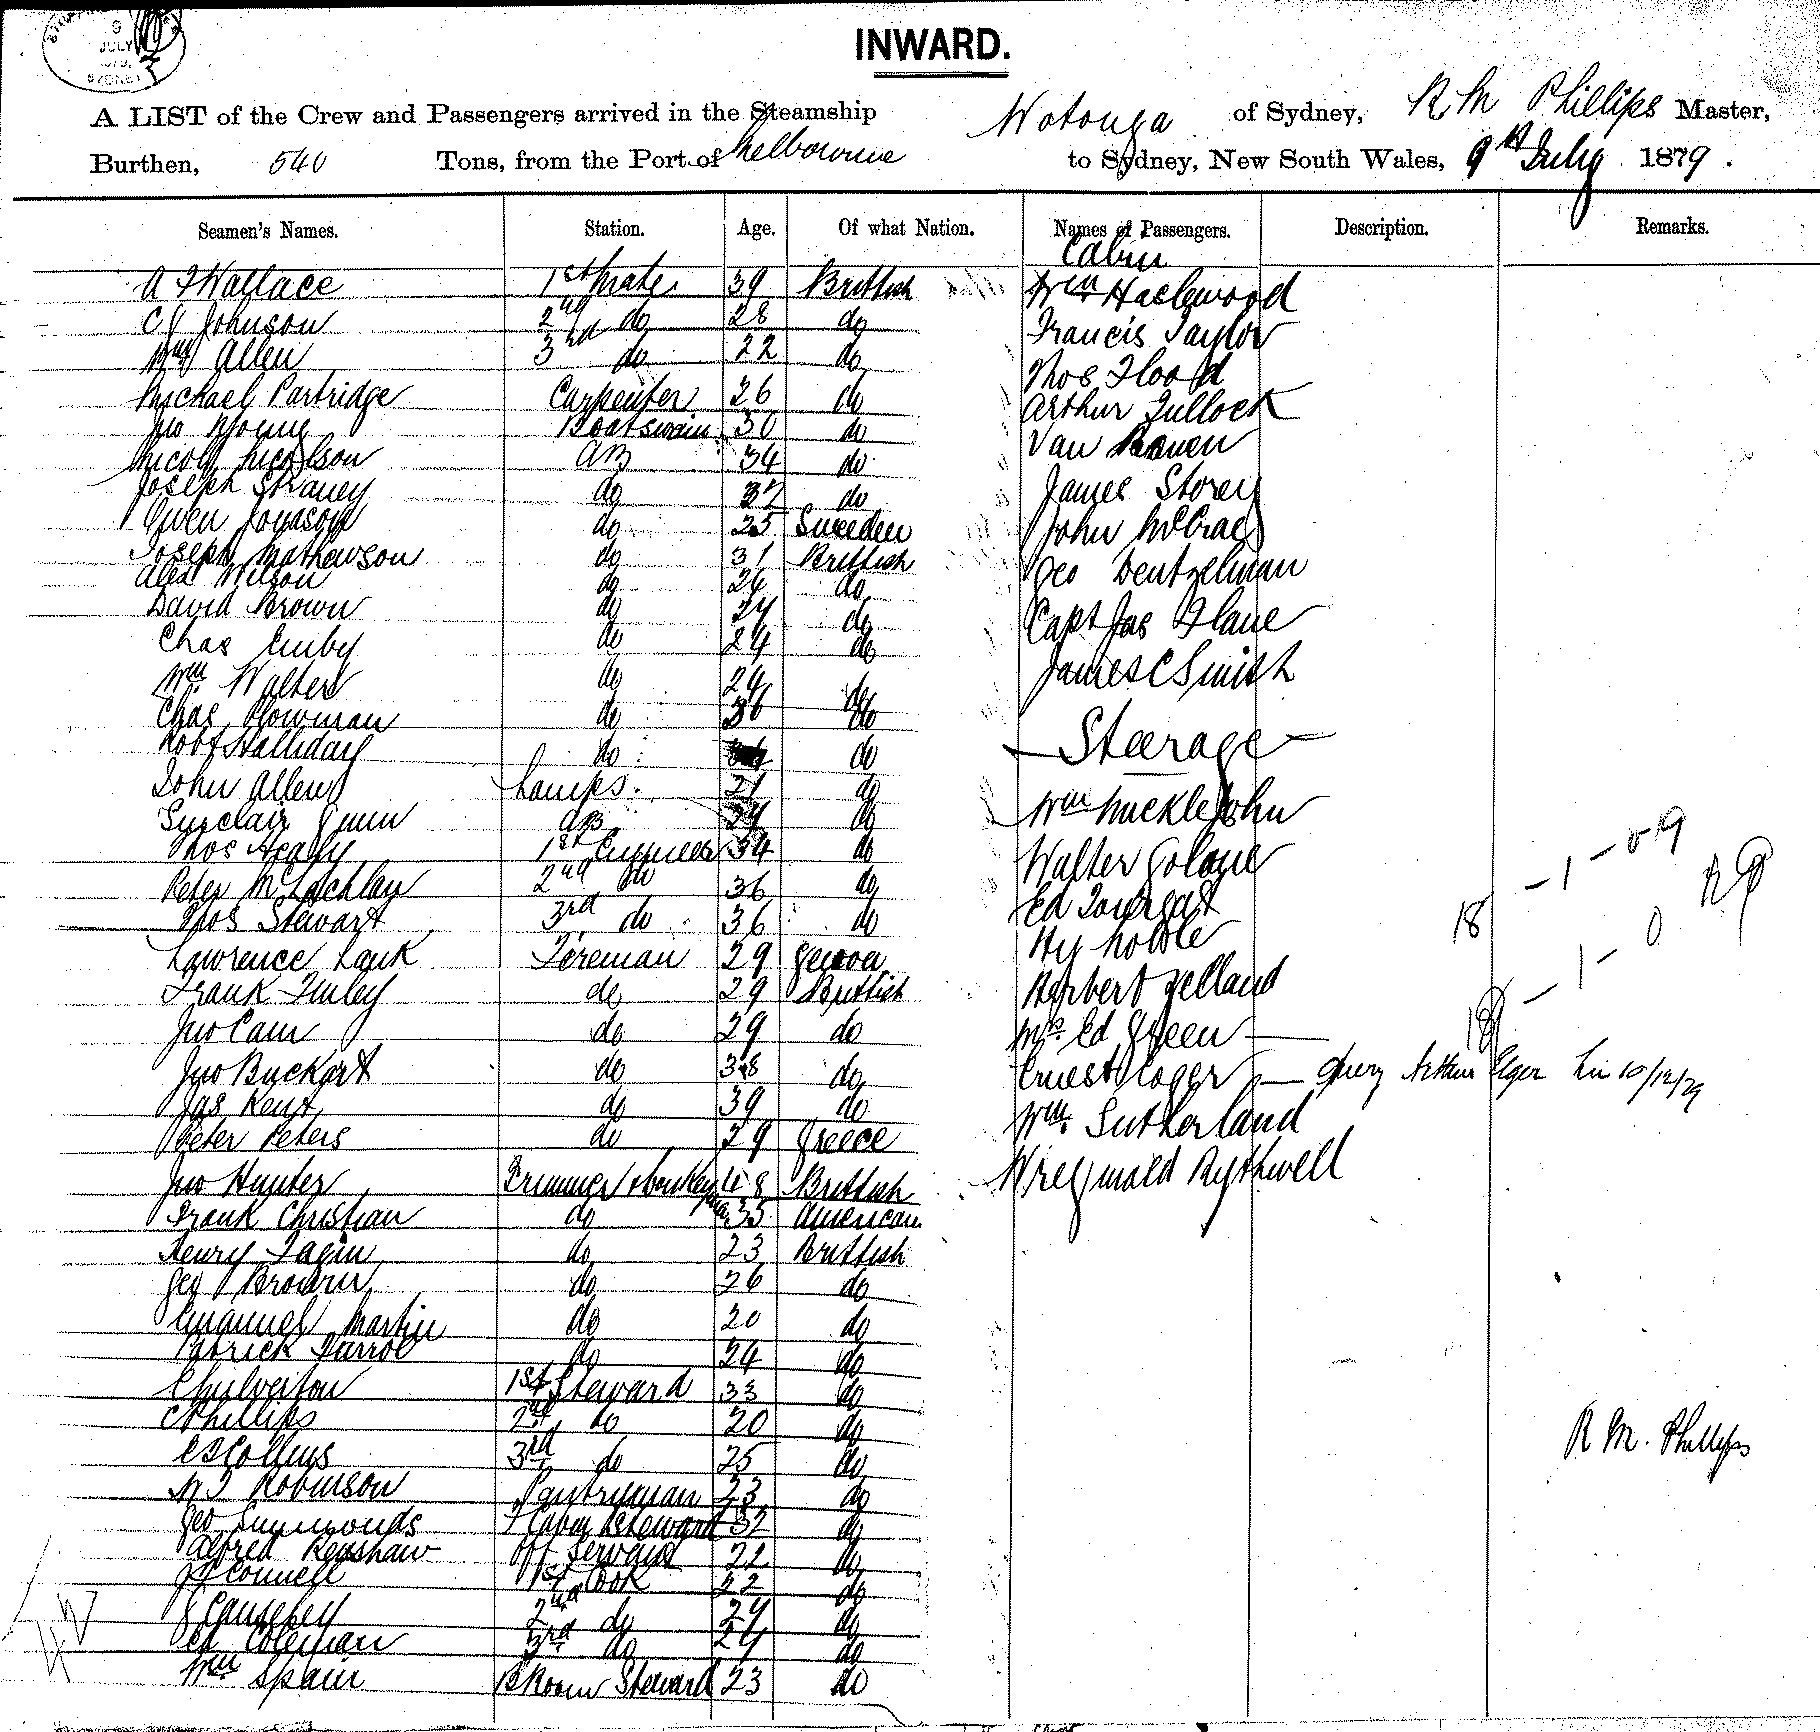 9
JULY
SYDNEY
INWARD.
A LIST of the Crew and Passengers arrived in the Steamship Wotonga of Sydney, R M Phillips Master,
Burthen, 540 Tons, from the Port of Melbourne to Sydney, New South Wales, 9th July 1879.
Seamen's Names. Station. Age. Of what Nation. Names of Passengers. Description. Remarks.
Cabin
A F Wallace 1st Mate 39 Brittish Wm Haclewood
C J Johnson 2nd do 28 do Francis Taylor
Wm Allen 3rd do 22 do Thos Flood
Michael Partridge Carpenter 26 do Arthur Tullock
Jno Young Boatswain 30 do Van
Nicoll Nicolson AB 34 do James Storey
Joseph do 37 do John McCrae
Owen Jonason do 25 Sweeden
Joseph Mathewson do 31 Brittish Geo Dentzelman
Alex Wilson do 26 do
David Brown do 24 do Capt Jas
Chas do 24 do James C Smith
Wm Walter do 24 do
Chas Plowman do 36 do Steerage
Robt Halliday do do
John Allen Lamps 21 do Wm Mucklejohn
Sinclair Gunn AB 24 do
Thos 1st Engineer 34 do Walter
Peter McLachlan 2nd do 36 do Ed
Thos Stewart 3rd do 36 do Hy Noble 18 - 1 - 0 9
Lawrence Fireman 29 Genoa Herbert Yelland
Frank Finley do 29 Brittish
Jno Cam do 29 do Mrs Ed Green 18 - 1 - 0
Jno Buckart do 38 do Ernest Query Arthur Elger 10/12/79
Jas Kent do 39 do Wm Sutherland
Peter Peters do 29 Greece
Jno Hunter Trimmer & donkeyman 48 Brittish W Reginald Rythwell
Frank Christian do 35 American
Henry Fagin do 23 Brittish
Geo Brown do 26 do
Emanuel Martin do 20 do
Patrick do 24 do
1st Steward 33 do
C Phillips 2nd do 20 do
C B Collins 3rd do 25 do R M. Phillips
W T Robinson Pantryman 23 do
Geo Simmonds F Cabin Steward 32 do
Alfred Renshaw Off Servant 22 do
J J Connell 1st Cook 22 do
2nd do 24 do
Ed Coleman 3rd do 24 do
Wm Spain B Room Steward 23 do